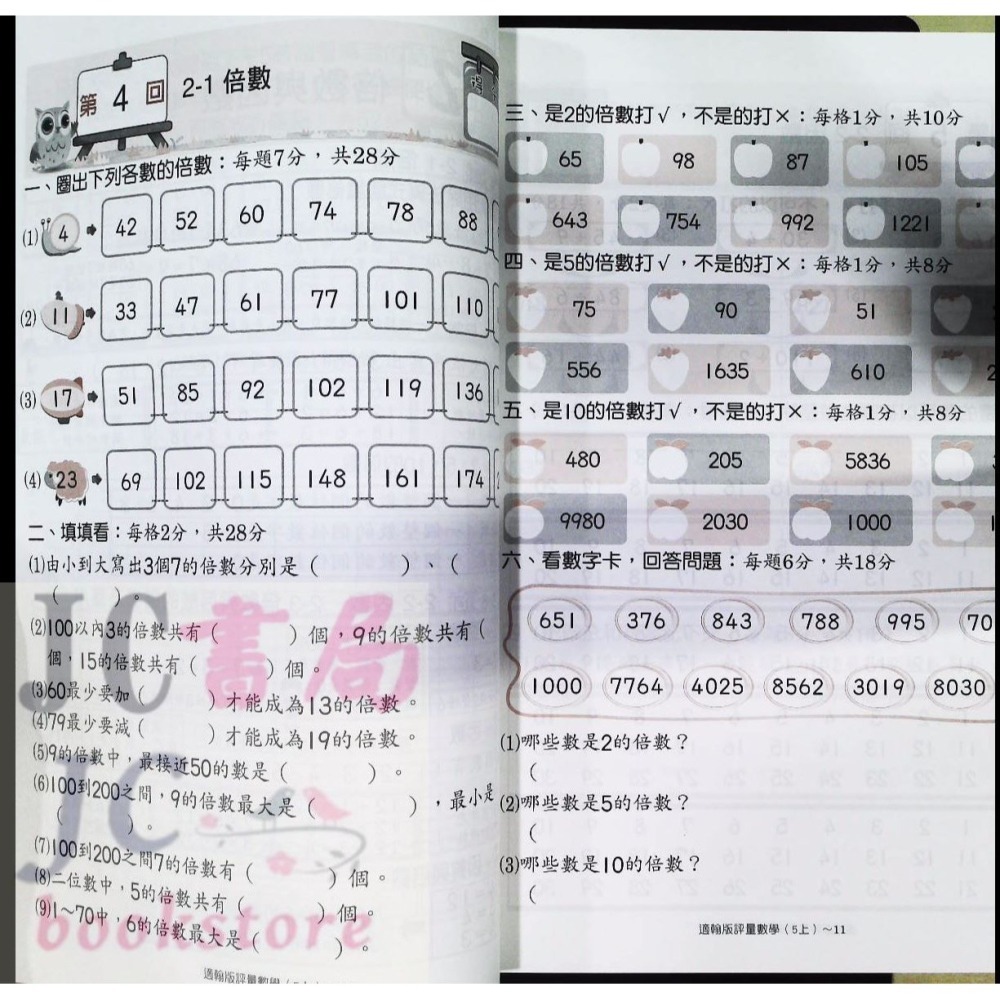 第4回 2-1 倍數
得
一、圈出下列各數的倍數：每題7分，共28分
(1) 4 42 52 60 74 78 88
(2) 11 33 47 61 77 101 110
(3) 17 51 85 92 102 119 136
(4) 23 69 102 115 148 161 174
二、填填看：每格2分，共28分
(1)由小到大寫出3個7的倍數分別是（ ）、（
（ ）。
(2)100以內3的倍數共有（ ）個，9的倍數共有（
個，15的倍數共有（ ）個。
(3)60最少要加（ ）才能成為13的倍數。
(4)79最少要減（ ）才能成為19的倍數。
(5)9的倍數中，最接近50的數是（ ）。
(6)100到200之間，9的倍數最大是（ ），最小是
（ ）。
(7)100到200之間7的倍數有（ ）個。
(8)二位數中，5的倍數共有（ ）個。
(9)1～70中，6的倍數最大是（ ）。
適翰版評量數學（5上）
JC書局
JC
bookstore
三、是2的倍數打√，不是的打×：每格1分，共10分
65 98 87 105
643 754 992 1221
四、是5的倍數打√，不是的打×：每格1分，共8分
75 90 51
556 1635 610 2
五、是10的倍數打√，不是的打×：每格1分，共8分
480 205 5836
9980 2030 1000 1
六、看數字卡，回答問題：每題6分，共18分
651 376 843 788 995 70
1000 7764 4025 8562 3019 8030
(1)哪些數是2的倍數？
（
(2)哪些數是5的倍數？
（
(3)哪些數是10的倍數？
（
適翰版評量數學（5上）～11